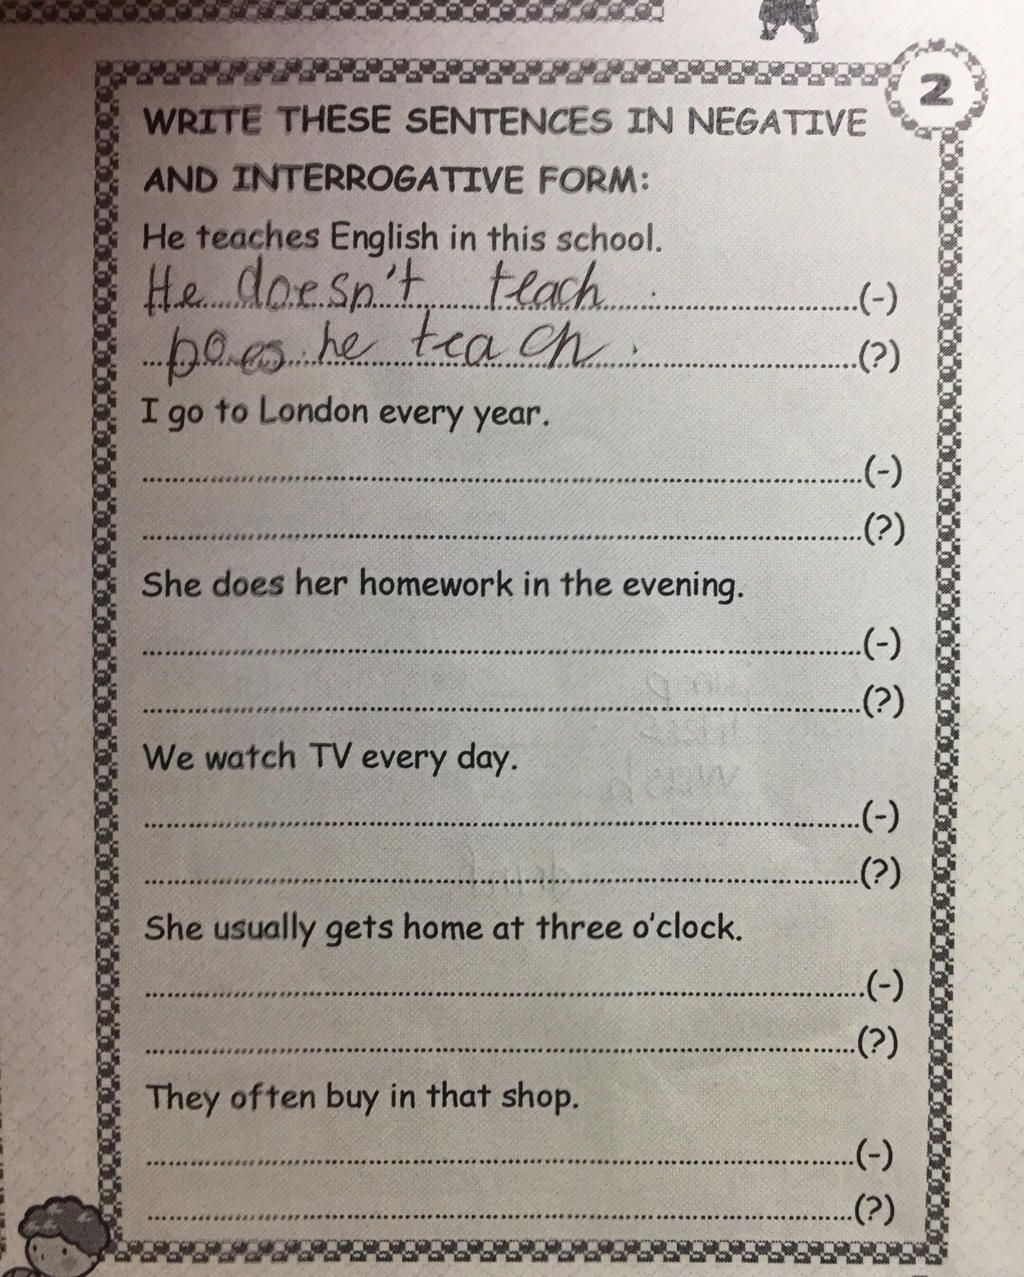 2
WRITE THESE SENTENCES IN NEGATIVE
AND INTERROGATIVE FORM:
He teaches English in this school.
He doesn't teach .(-)
Does he teach .(?)
I go to London every year.
(-)
(?)
She does her homework in the evening.
(-)
(?)
We watch TV every day.
(-)
(?)
She usually gets home at three o'clock.
(-)
(?)
They often buy in that shop.
(-)
(?)